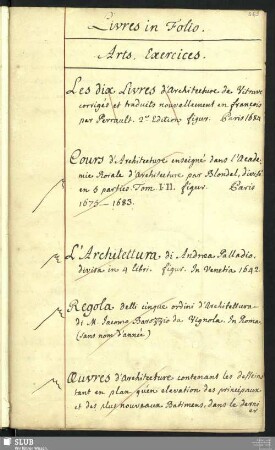 Livres in Folio.
Arts. Exercices.
Les dix Livres d'Architecture de Vitruve
corrigés et traduits nouvellement en françois
par Perrault. 2de Edition figur. Paris 1684
Cours d'Architecture enseigné dans l'Acade-
mie Roiale d'Architecture par Blondel, divisé
en 5 parties Tom. I-II. figur. Paris
1675-1683.
L'Architettura di Andrea Palladio
divisa in 4 libri. figur. In Venetia 1642.
Regola delli cinque ordini d'Architettura
di M. Jacomo Barozzio da Vignola. In Roma
(sans nom d'année)
Œuvres d'Architecture contenant les desseins
tant en plan qu'en elevation des principaux
et des plus nouveaux Batimens, dans le derni
er
SLUB